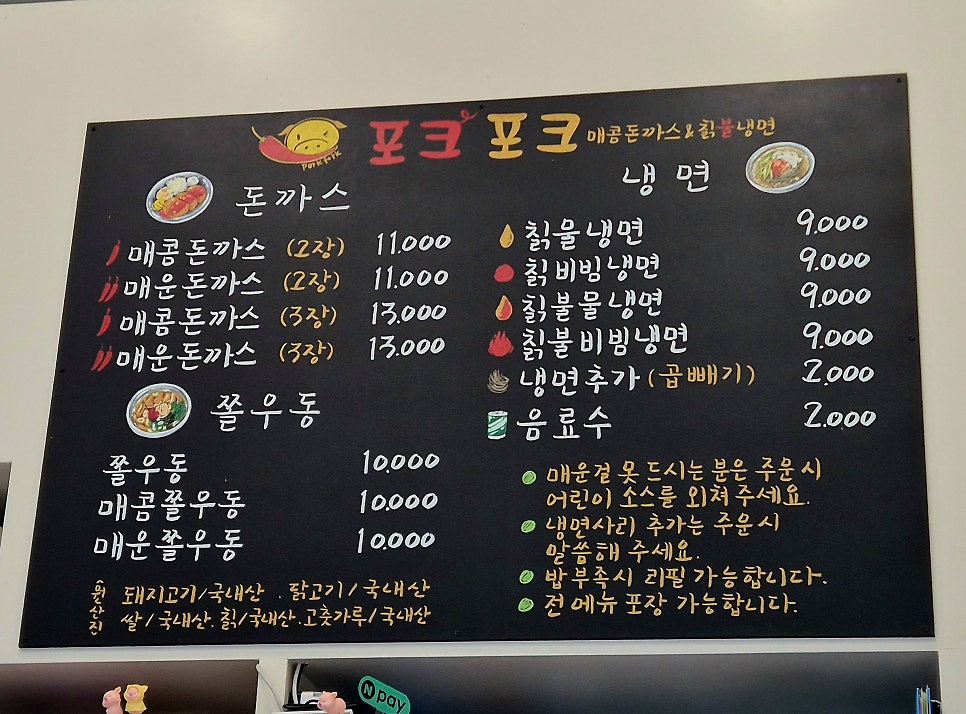 포크 포크 매콤돈까스&칡불냉면
Porkfork
돈까스
매콤돈까스 (2장) 11.000
매운돈까스 (2장) 11.000
매콤돈까스 (3장) 13.000
매운돈까스 (3장) 13.000
쫄우동
쫄우동 10.000
매콤쫄우동 10.000
매운쫄우동 10.000
원산지
돼지고기/국내산 . 닭고기/국내산
쌀/국내산. 칡/국내산. 고춧가루/국내산
냉면
칡물냉면 9.000
칡비빔냉면 9.000
칡불물냉면 9.000
칡불비빔냉면 9.000
냉면추가(곱빼기) 2.000
음료수 2.000
매운걸 못 드시는 분은 주문시
어린이 소스를 외쳐 주세요.
냉면사리 추가는 주문시
말씀해 주세요.
밥 부족시 리필 가능합니다.
전 메뉴 포장 가능합니다.
N pay